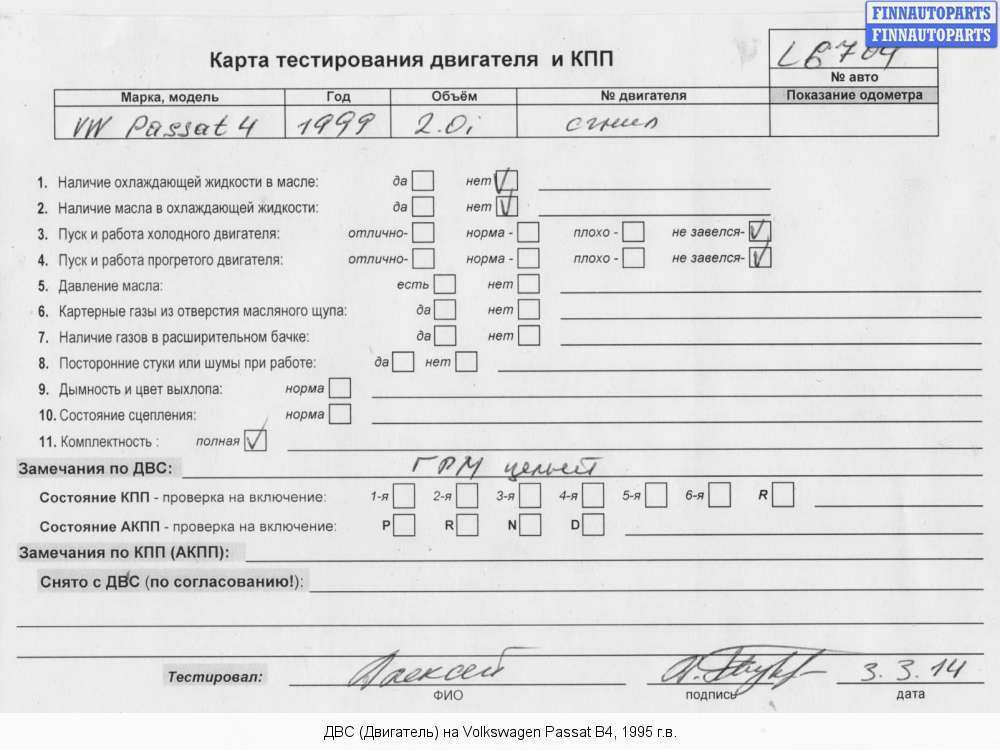 FINNAUTOPARTS
FINNAUTOPARTS
Карта тестирования двигателя и КПП
LB704
№ авто
Марка, модель Год Объём № двигателя Показание одометра
VW Passat 4 1999 2.0i сгнил
1. Наличие охлаждающей жидкости в масле: да нет
2. Наличие масла в охлаждающей жидкости: да нет
3. Пуск и работа холодного двигателя: отлично- норма - плохо - не завелся-
4. Пуск и работа прогретого двигателя: отлично- норма - плохо - не завелся-
5. Давление масла: есть нет
6. Картерные газы из отверстия масляного щупа: да нет
7. Наличие газов в расширительном бачке: да нет
8. Посторонние стуки или шумы при работе: да нет
9. Дымность и цвет выхлопа: норма
10. Состояние сцепления: норма
11. Комплектность : полная
Замечания по ДВС: ГРМ целый
Состояние КПП - проверка на включение: 1-я 2-я 3-я 4-я 5-я 6-я R
Состояние АКПП - проверка на включение: P R N D
Замечания по КПП (АКПП):
Снято с ДВС (по согласованию!):
Тестировал: Алексей 3.3.14
ФИО подпись дата
ДВС (Двигатель) на Volkswagen Passat B4, 1995 г.в.